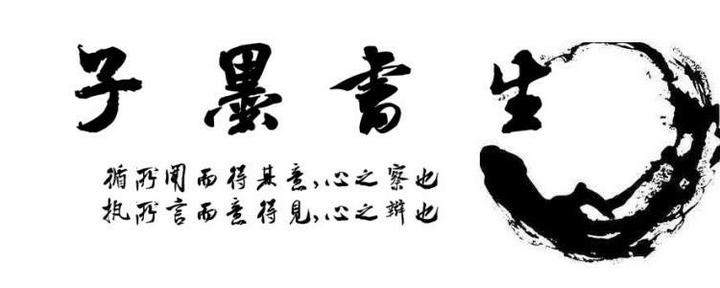 子墨书生
循所闻而得其意,心之察也
执所言而意得见,心之辩也